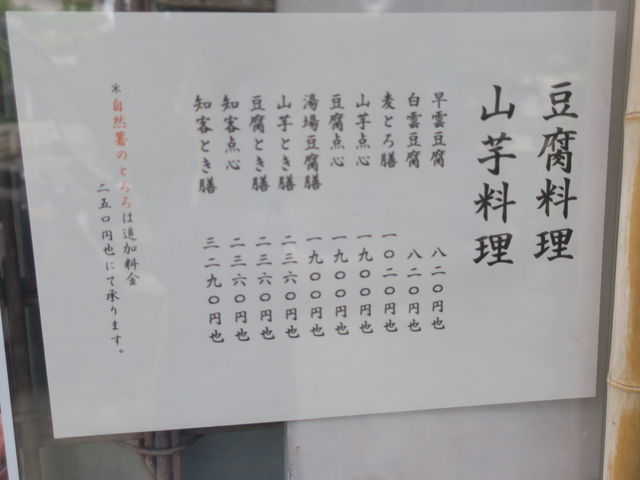 豆腐料理
山芋料理
早雲豆腐 八二〇円也
白雲豆腐 八二〇円也
麦とろ膳 一〇二〇円也
山芋点心 一九〇〇円也
豆腐点心 一九〇〇円也
湯場豆腐膳 一九〇〇円也
山芋とき膳 二三六〇円也
豆腐とき膳 二三六〇円也
知客点心 二三六〇円也
知客とき膳 三二九〇円也
＊自然薯のとろろは追加料金
二五〇円也にて承ります。